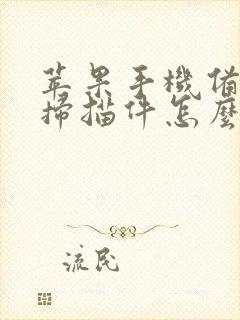 苹果手機備
掃描件怎麽
流民